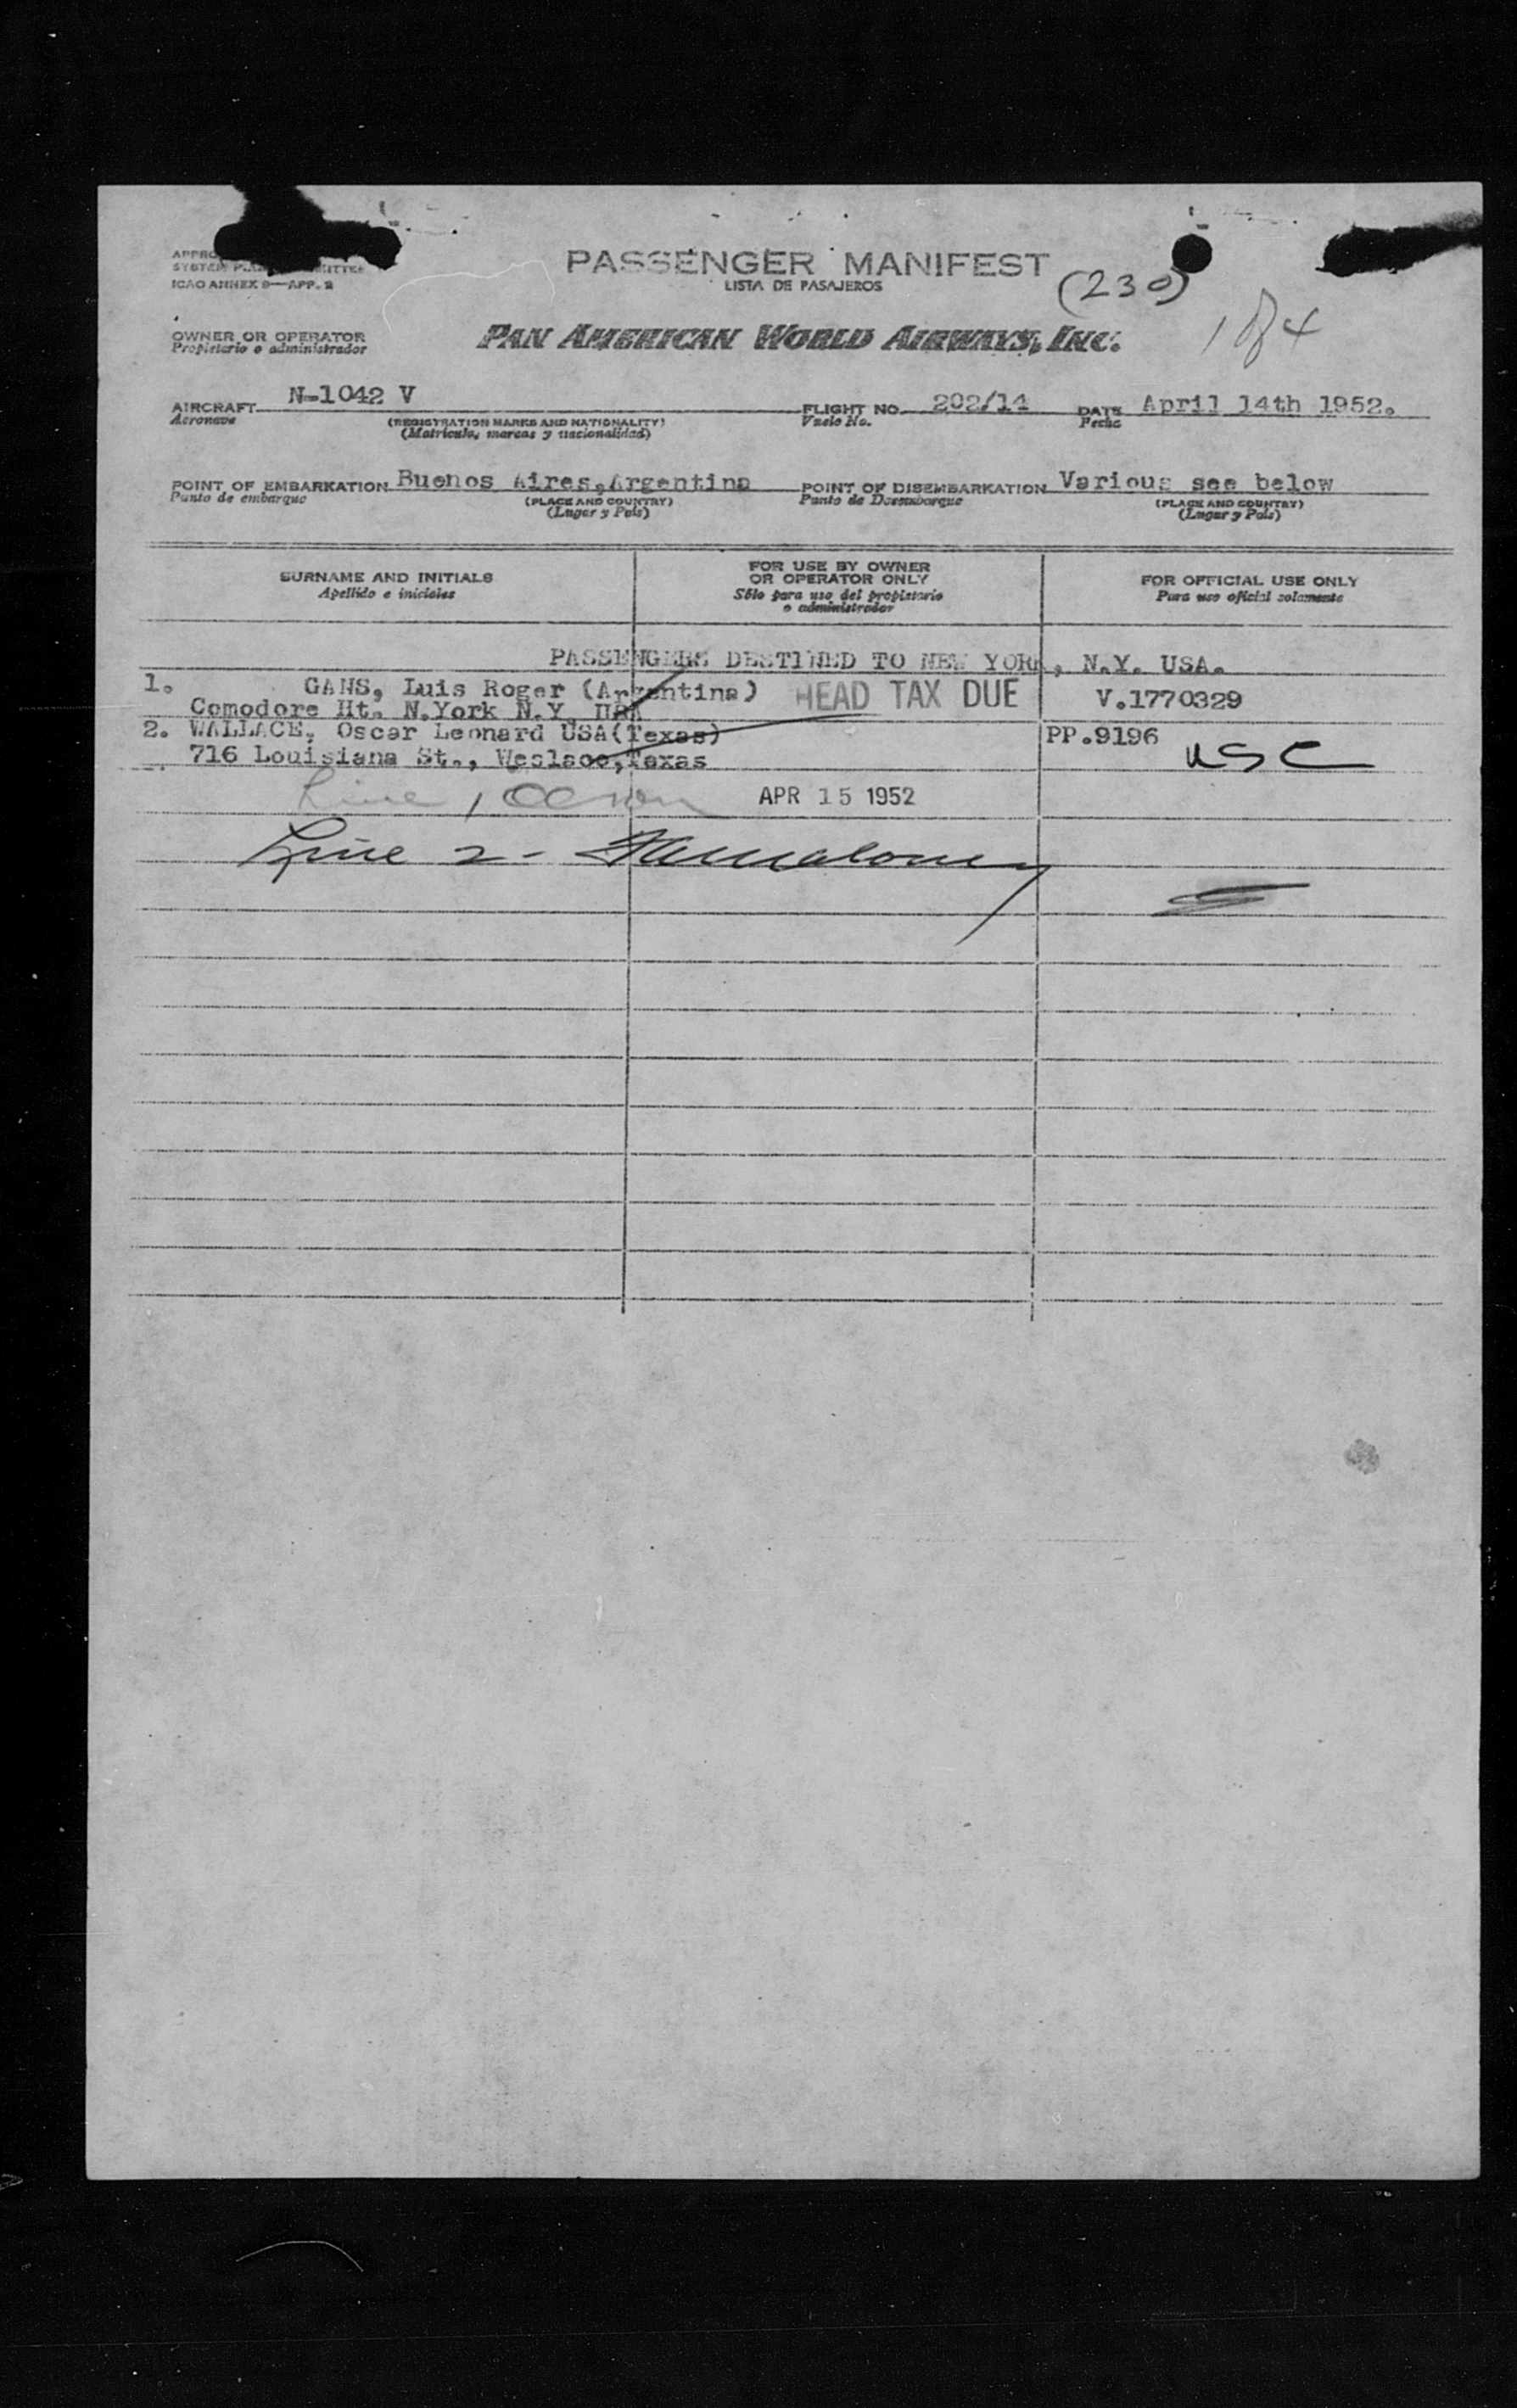 PASSENGER MANIFEST
LISTA DE PASAJEROS
(230)
ICAO ANNEX 9—APP. 2
184
OWNER OR OPERATOR
Propietario o administrador
PAN AMERICAN WORLD AIRWAYS, INC.
AIRCRAFT N-1042 V FLIGHT NO. 202/14 DATE April 14th 1952.
Aeronave (REGISTRATION MARKS AND NATIONALITY) Vuelo No. Fecha
(Matrícula, marcas y nacionalidad)
POINT OF EMBARKATION Buenos Aires,Argentina POINT OF DISEMBARKATION Various see below
Punto de embarque (PLACE AND COUNTRY) Punto de Desembarque (PLACE AND COUNTRY)
(Lugar y País) (Lugar y País)
SURNAME AND INITIALS
Apellido e iniciales
FOR USE BY OWNER
OR OPERATOR ONLY
Sólo para uso del propietario
o administrador
FOR OFFICIAL USE ONLY
Para uso oficial solamente
PASSENGERS DESTINED TO NEW YORK, N.Y. USA.
1. GANS, Luis Roger (Argentina) HEAD TAX DUE V.1770329
Comodore Ht. N.York N.Y. USA
2. WALLACE, Oscar Leonard USA(Texas) PP.9196
716 Louisiana St., Weslaco,Texas USC
Line 1 APR 15 1952
Line 2 -